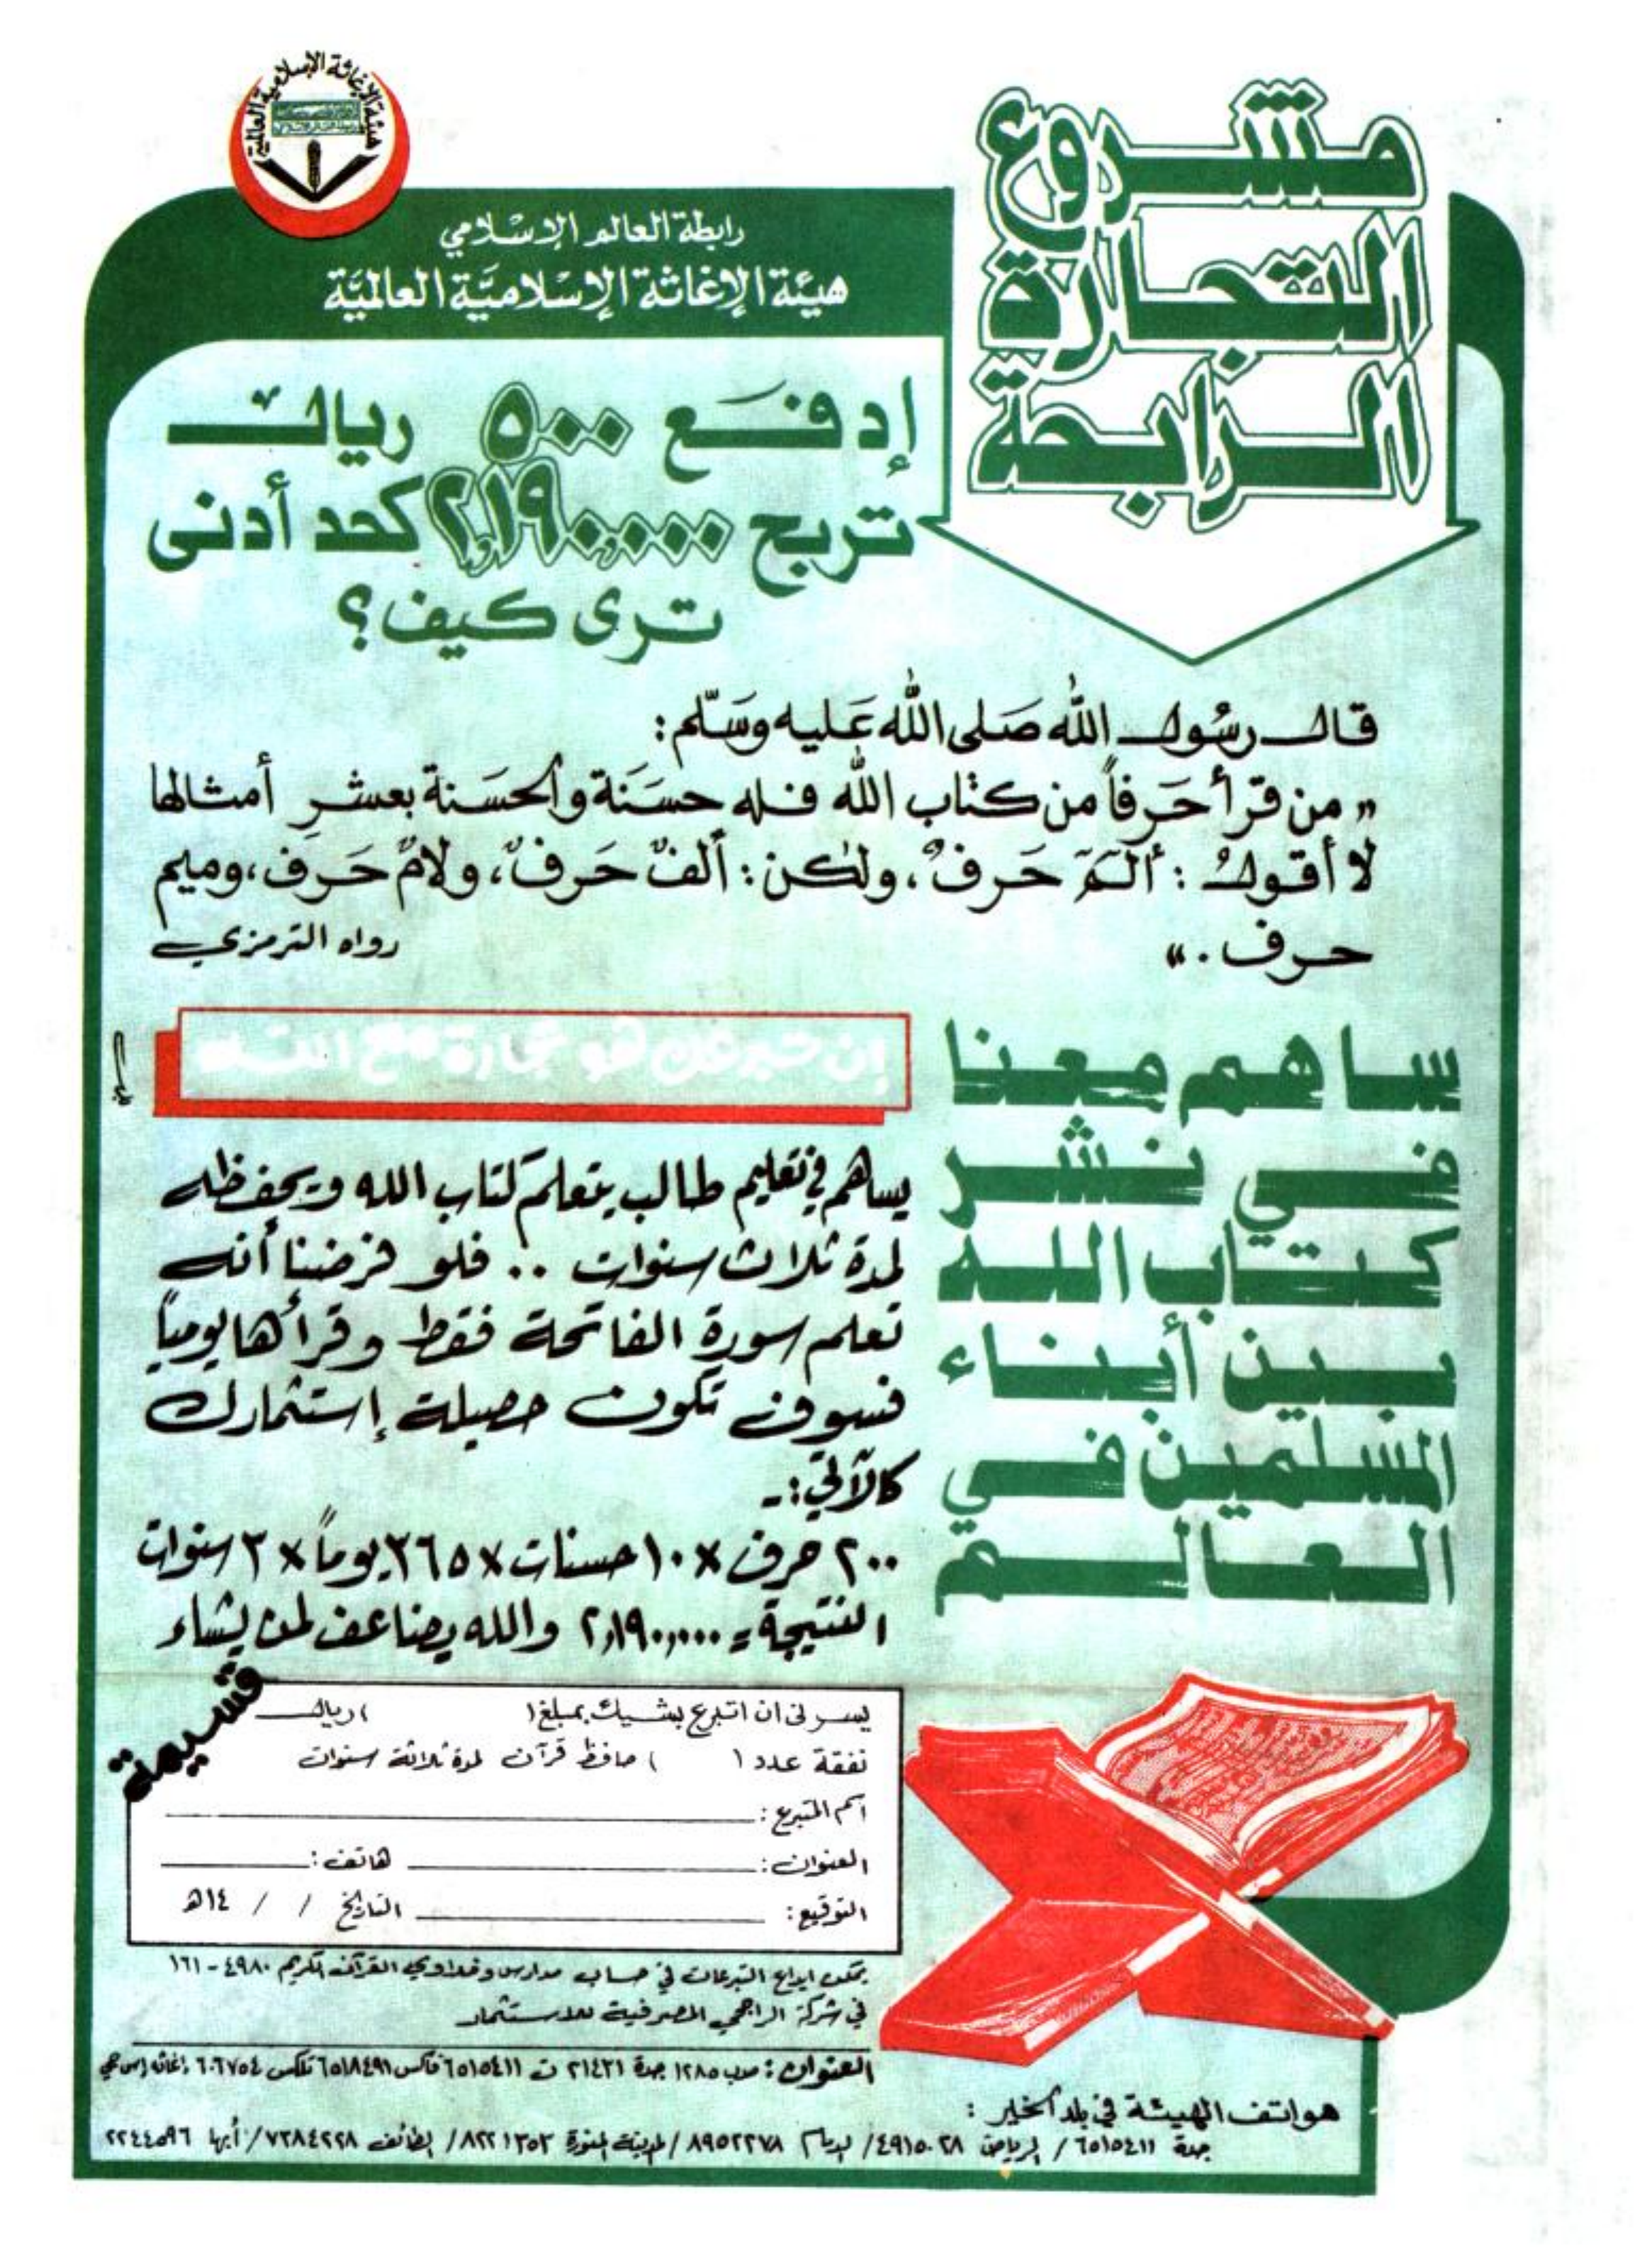 هيئة الإغاثة الإسلامية العالمية
مشروع
التجارة
الرابحة
رابطة العالم الإسلامي
هيئة الإغاثة الإسلاميَّة العالميَّة
إدفع ٥٠٠ ريال
تربح ٢,١٩٠,٠٠٠ كحد أدنى
ترى كيف؟
قال رسُول الله صَلى الله عَليه وسَلّم:
« من قرأ حَرفاً من كتاب الله فله حسَنة والحسَنة بعشرِ أمثالها
لا أقولُ : ألمَ حَرفٌ ، ولكن : ألفٌ حَرفٌ ، ولامٌ حَرف ، وميم
حرف . »
رواه الترمزي
ساهم معنا
في نشر
كتاب الله
بين أبناء
المسلمين في
العالم
إن تبرعك هو تجارة مع الله
يساهم في تعليم طالب يتعلم كتاب الله ويحفظه
لمدة ثلاث سنوات .. فلو فرضنا أنه
تعلم سورة الفاتحة فقط وقرأها يومياً
فسوف تكون حصيلة إستثمارك
كالآتي :-
٢٠٠ حرف × ١٠ حسنات × ٣٦٥ يوماً × ٣ سنوات
النتيجة = ٢,١٩٠,٠٠٠ والله يضاعف لمن يشاء
قسيمة
يسرني ان اتبرع بشيك بمبلغ ( ) ريال
نفقة عدد ( ) حافظ قرآن لمدة ثلاثة سنوات
اسم المتبرع :
العنوان : هاتف :
التوقيع : التاريخ / / ١٤هـ
يمكن ايداع التبرعات في حساب مدارس وخلاوي القرآن الكريم ٤٩٨٠ - ١٦١
في شركة الراجحي المصرفية للاستثمار
العنوان : ص.ب ١٢٨٥٠ جدة ٢١٤٣١ ت ٦٥١٥٤١١ فاكس ٦٥١٨٤٩١ تلكس ٦٠٦٧٥٤ إغاثه إس جي
هواتف الهيئة في بلد الخير :
جدة ٦٥١٥٤١١ / الرياض ٤٩١٥٠٢٨ / الدمام ٨٩٥٢٢٧٨ / المدينة المنورة ٨٢٢١٣٥٣ / الطائف ٧٣٨٤٢٢٨ / أبها ٢٢٤٤٥٩٦